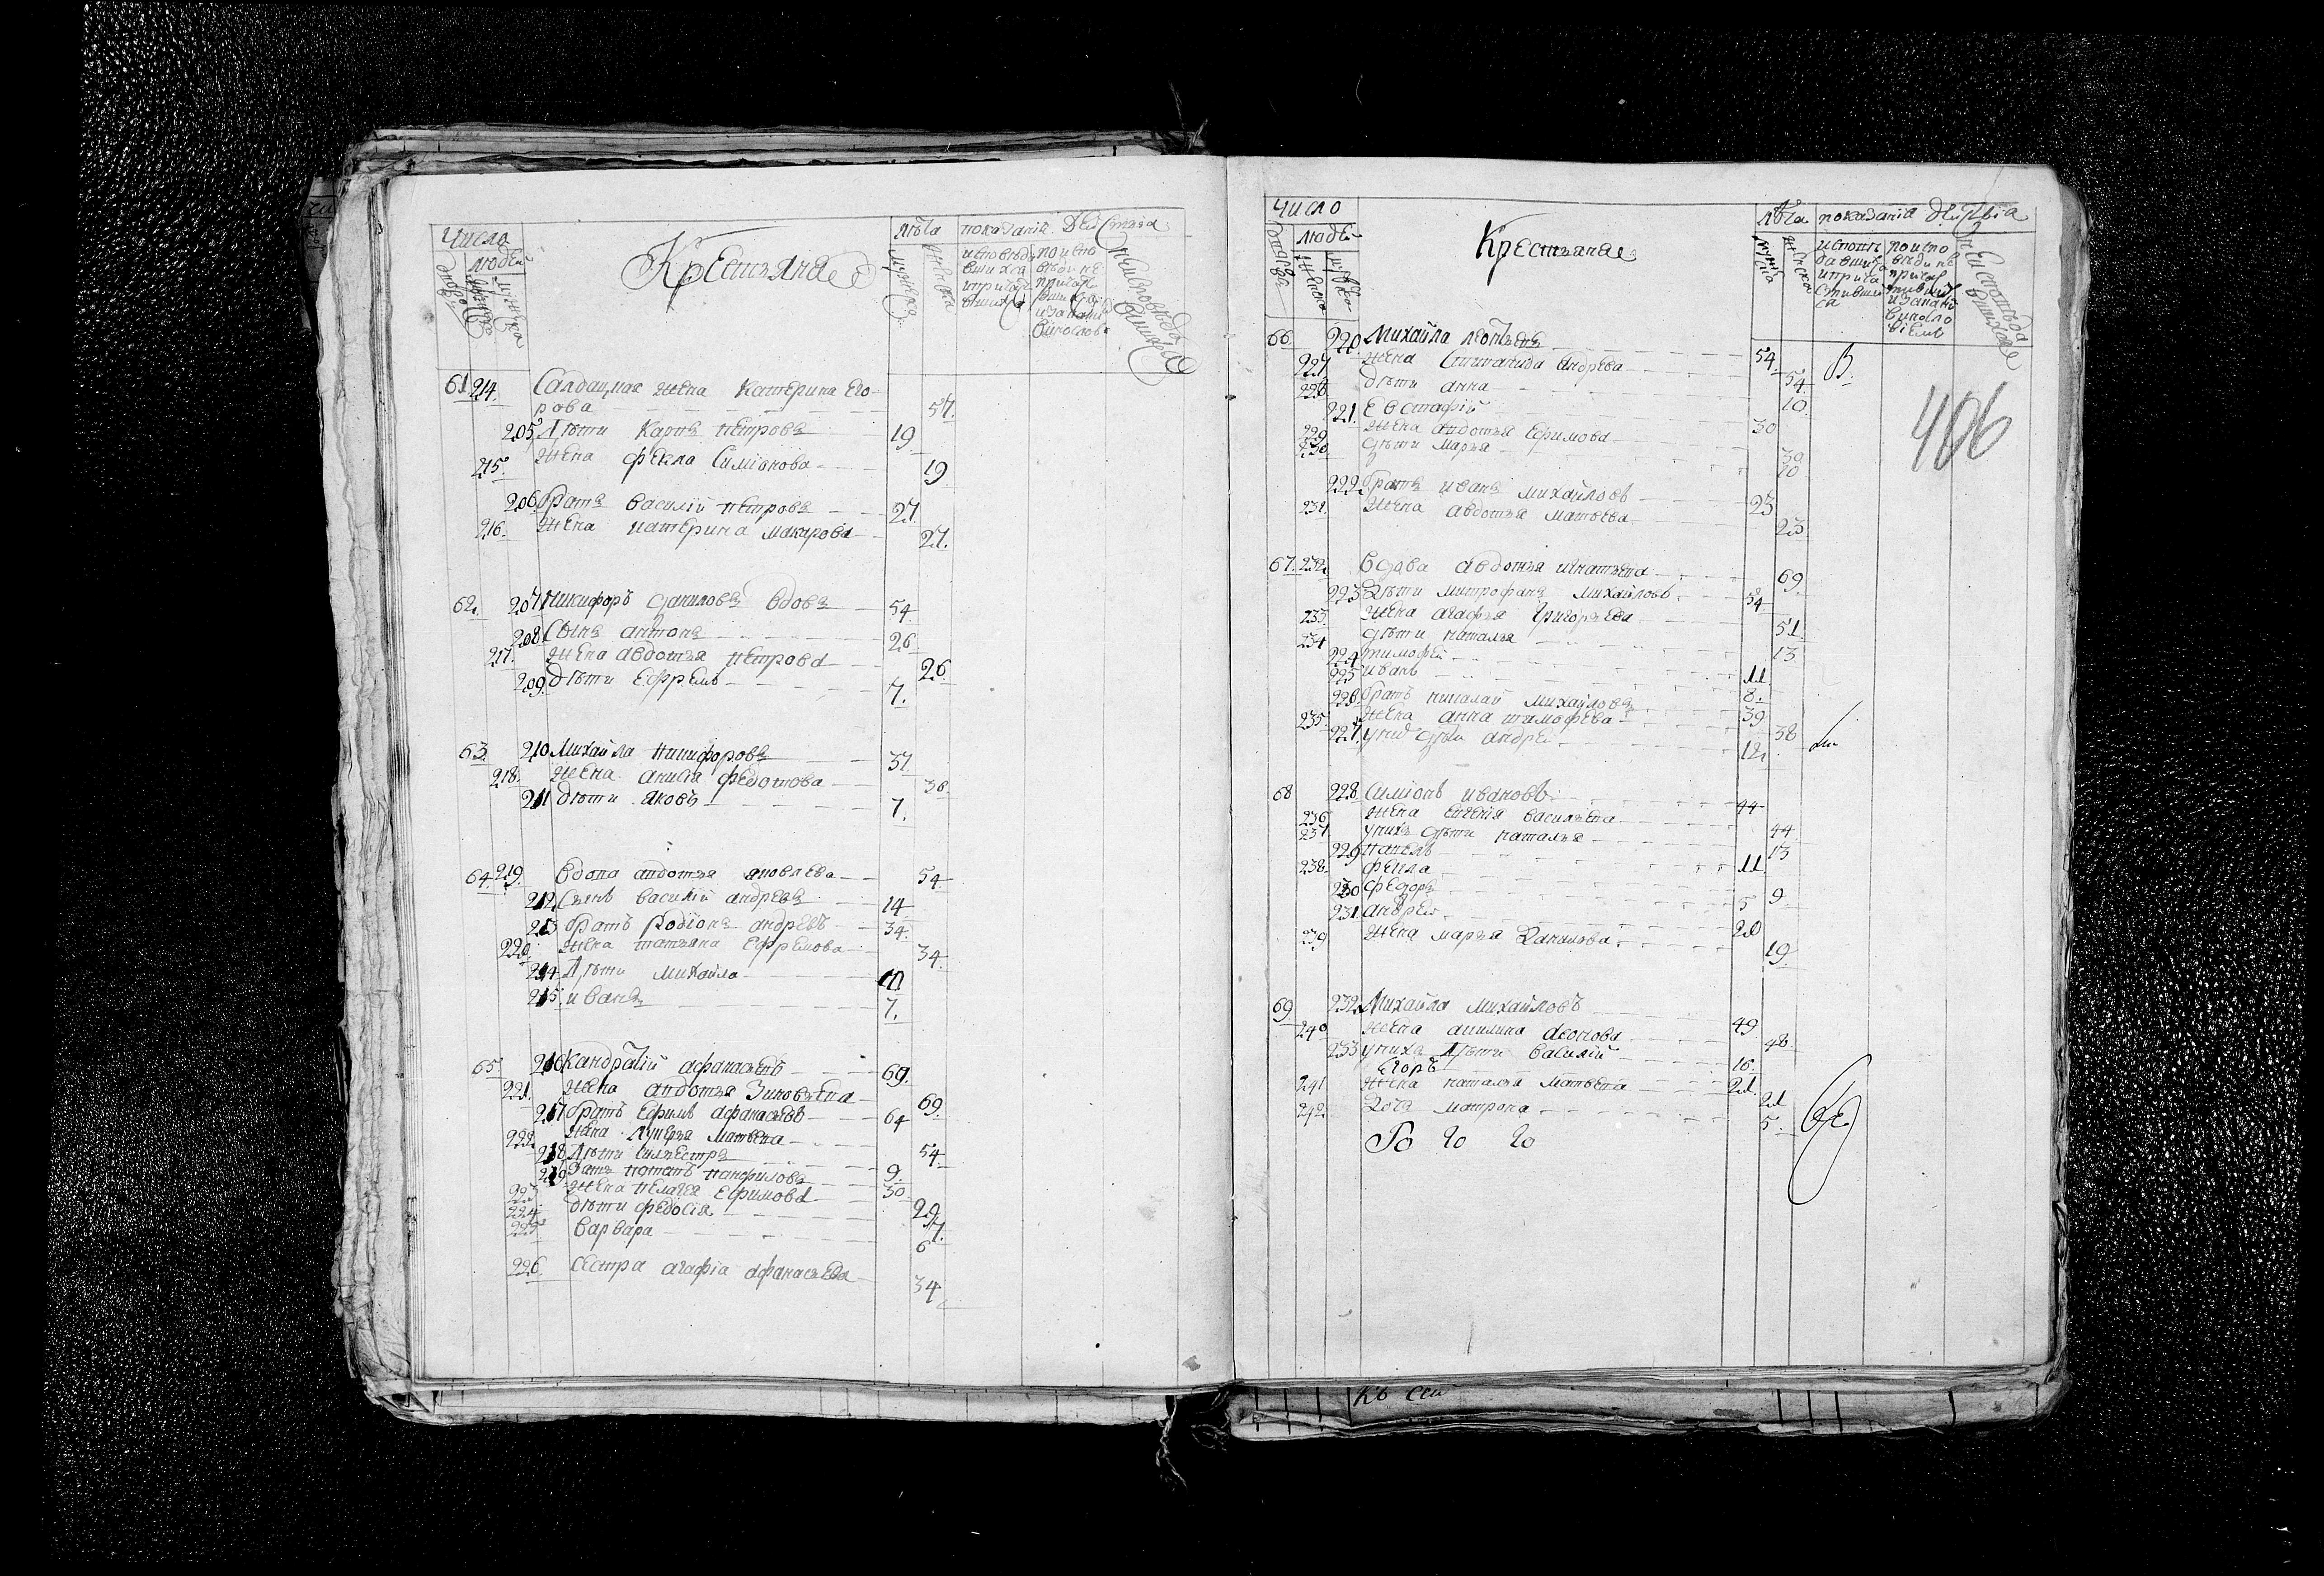 Число
людей
Крестьяне
лѣта
показанія действа
61 214 Салдацкая жена Катерина Его-
рова 57.
205 Дѣти Карпъ петровъ 19
215. жена фекла Симіонова 19
206 братъ василій петровъ 27
216. жена катерина макарова 27.
62. 207 Никифоръ даниловъ вдовъ 54
208 Сынъ антонъ 26
217. жена авдотья петрова 26
209. дѣти ефремъ 7.
63. 210 Михайла никифоровъ 37
218. жена анисья федотова 38
211 дѣти яковъ 7.
64. 219. вдова авдотья яковлева 54
212. Сынъ василій андревъ 14
213 братъ родіонъ андревъ 34.
220. жена татьяна ефремова 34.
214 Дѣти михайла 10
215. иванъ 7.
65. 216 Кандратій афанасьевъ 69.
221. жена авдотья Зиновьева 69.
217 братъ ефимъ афанасьевъ 64
222. жена лукерья матвева 54
218 Дѣти силвестръ 9.
219 Зять потапъ панфиловъ 30
223 жена пелагея ефимова 29
224 дѣти федосія 7.
225 варвара 6
226. сестра агафія афанасьева 34
Число
людей
Крестьяне
лѣта
показанія действія
406
66. 220 Михайла леонтьевъ 54. В.
227 жена Степанида андрева 54.
228 дѣти анна 10.
221. Евстафій 30
229 жена авдотья ефимова 30
230 дѣти марья 10
222 братъ иванъ михайловъ 23
231. жена авдотья матвева 23
67. 232. вдова авдотья игнатьева 69.
223 Дѣти митрофанъ михайловъ 54
233. жена агафья григорьева 51.
234 дѣти наталья 13
224 тимофей 11
225 иванъ 8.
226 братъ николай михайловъ 39
235. жена анна тимофева 38
227. у нихъ дѣти андрей 12.
68 228. Симіонъ ивановъ 44
236 жена евгенія васильева 44.
237 у нихъ дѣти наталья 13
229 павелъ 11
238. фекла 9.
230 федоръ 5
231. андрей 20
239 жена марья Данилова 19.
69 232. Михайла михайловъ 49
240 жена акилина леонова 48.
233 у нихъ дѣти василій 16.
Егоръ 21.
241 жена наталья матвева 21
242. Дочь матрона 5.
Го го го
Къ сеи